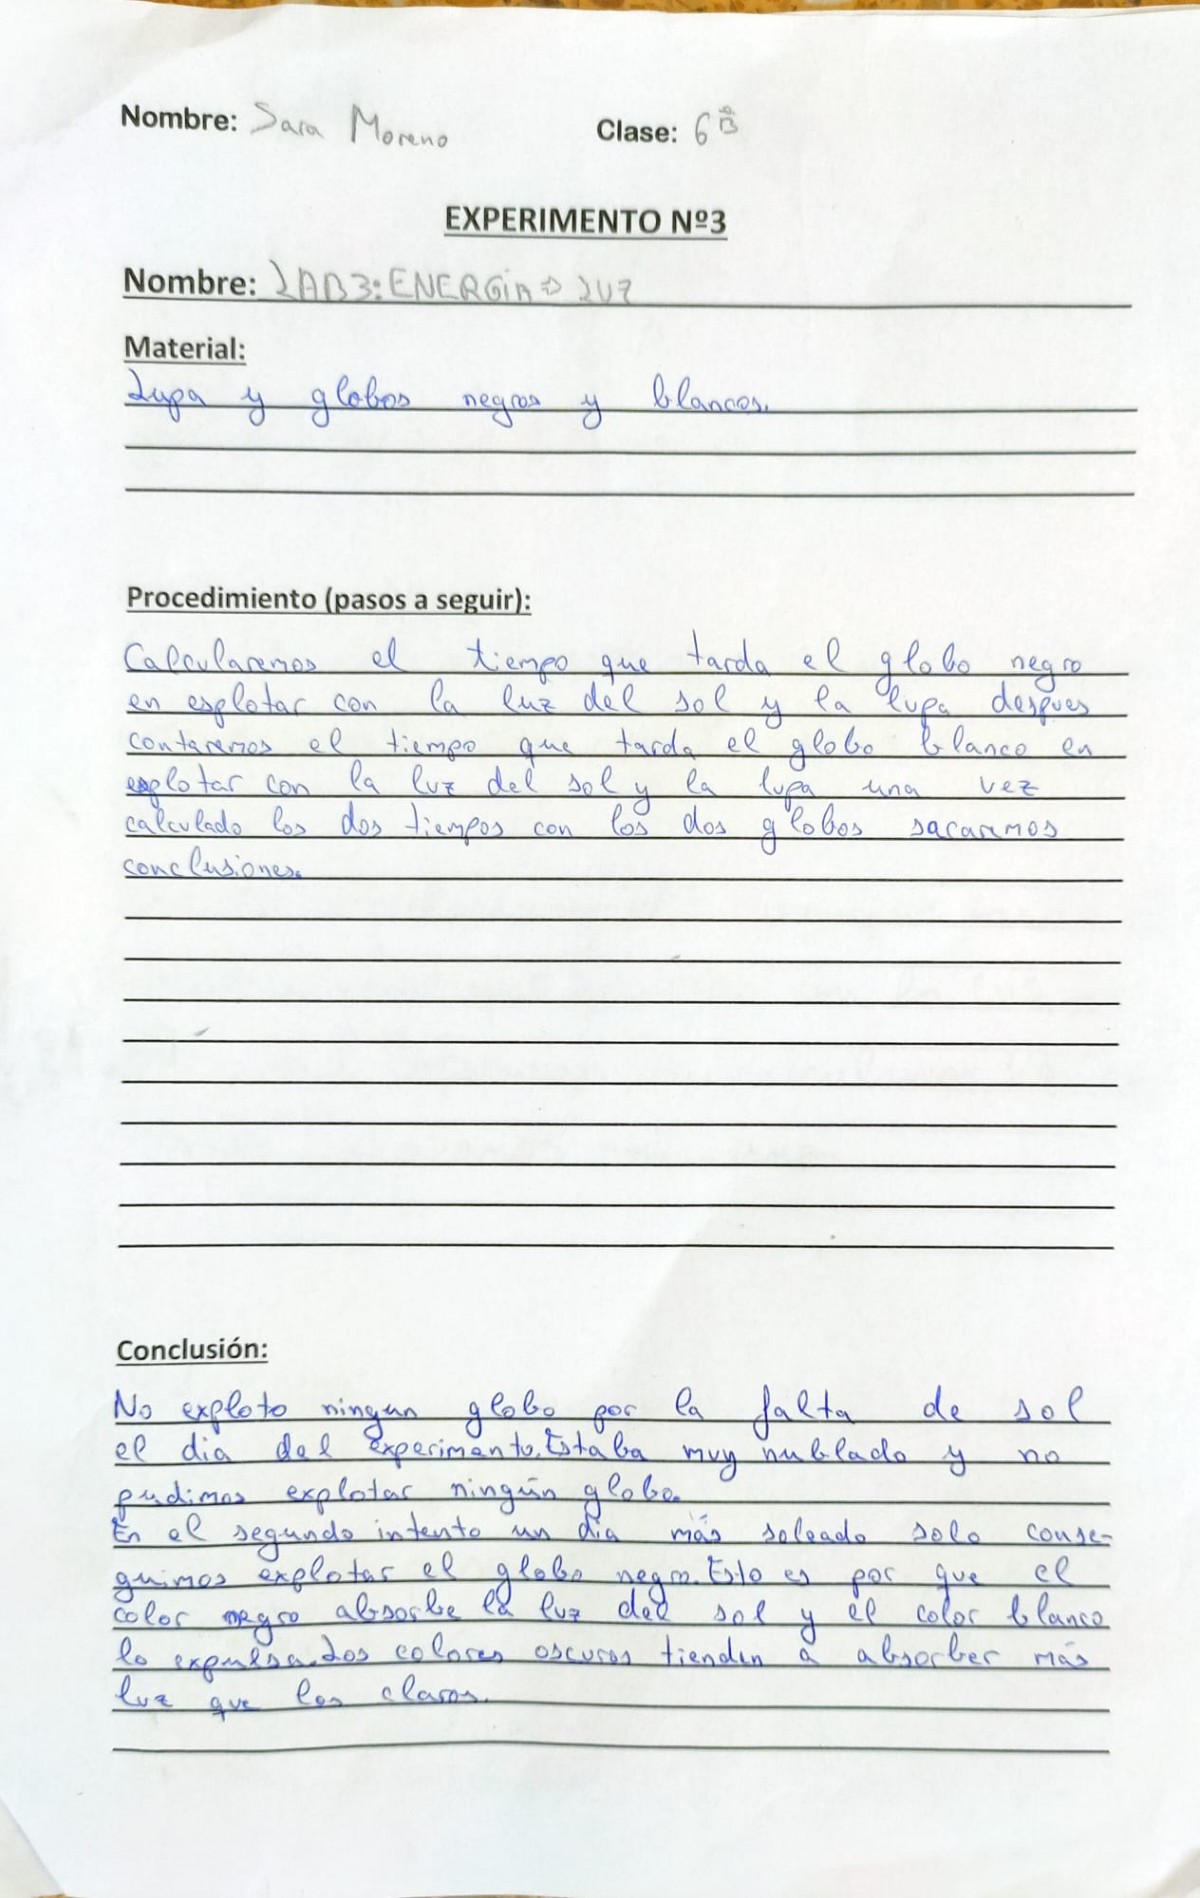 Nombre: Sara Moreno Clase: 6ºB
EXPERIMENTO Nº3
Nombre: LAB3: ENERGÍA ⇒ LUZ
Material:
Lupa y globos negros y blancos.
Procedimiento (pasos a seguir):
Calcularemos el tiempo que tarda el globo negro
en esplotar con la luz del sol y la lupa despues
contaremos el tiempo que tarda el globo blanco en
esplotar con la luz del sol y la lupa una vez
calculado los dos tiempos con los dos globos sacaremos
conclusiones.
Conclusión:
No exploto ningun globo por la falta de sol
el dia del experimento. Estaba muy nublado y no
pudimos explotar ningún globo.
En el segundo intento un día más soleado solo conse-
guimos explotar el globo negro. Esto es por que el
color negro absorbe la luz del sol y el color blanco
lo expulsa. Los colores oscuros tienden a absorber más
luz que los claros.